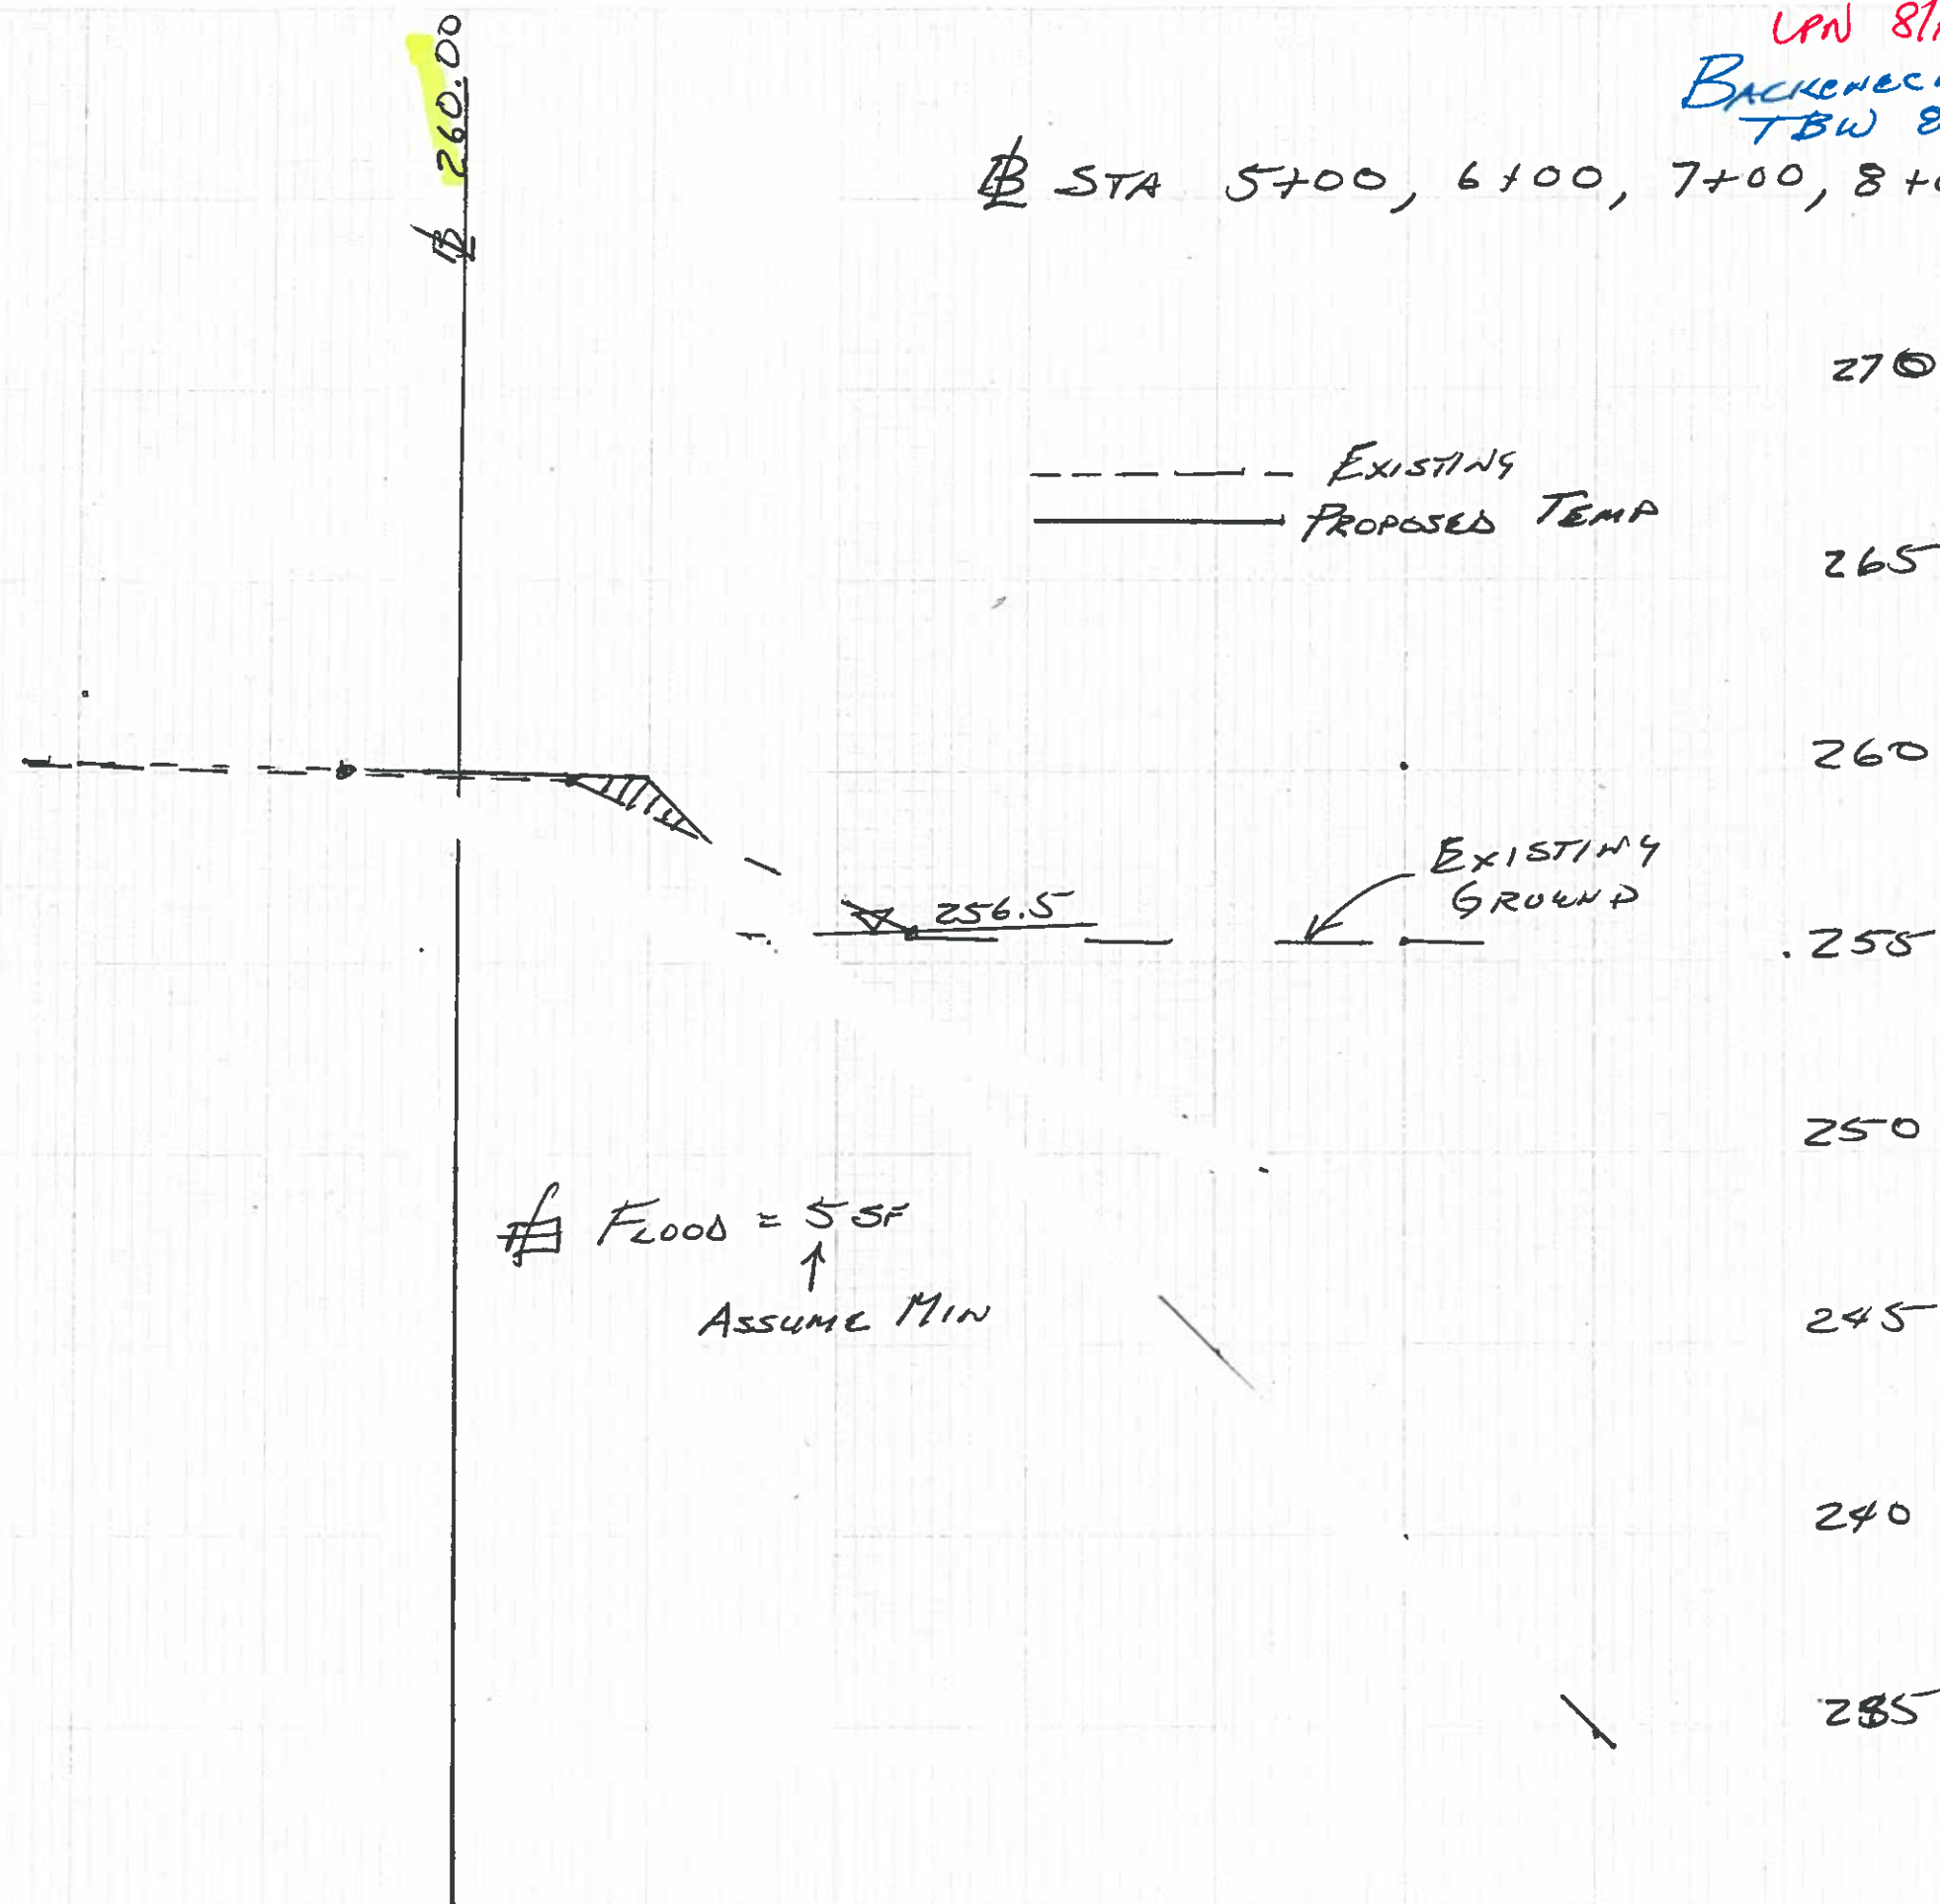 260.00
LPN
BACKCHECK
TBW
STA 5+00, 6+00, 7+00, 8+0
270
EXISTING
PROPOSED TEMP
265
260
EXISTING
GROUND
256.5
255
250
FLOOD = 5 SF
ASSUME MIN
245
240
285